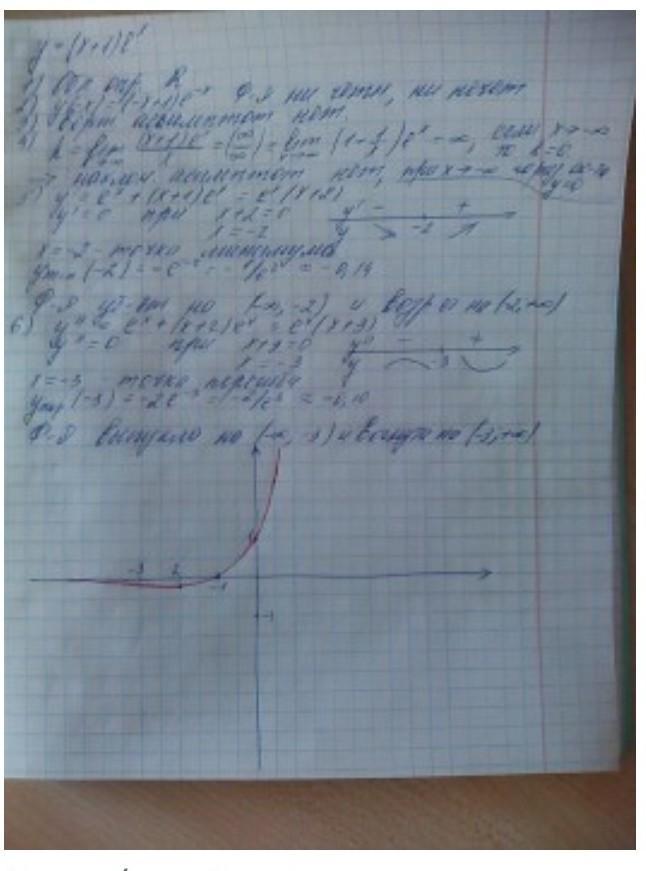 y = (x+1)e^x
1) Обл опр. R
2) y(-x) = (-x+1)e^-x ф-я ни четн, ни нечет
3) Верт асимптот нет.
4) k = lim (x+1)e^x / x = (∞/∞) = lim (1+1/x)e^x = ∞, если x→-∞ то k=0
=> наклон асимптот нет, при x→-∞ y=0
5) y' = e^x + (x+1)e^x = e^x(x+2)
y'=0 при x+2=0 y' - +
x=-2 y -2
x=-2 - точка минимума
ymin(-2) = -e^-2 = -1/e^2 ≈ -0,14
Ф-я уб-ет на (-∞,-2) и возр на (-2,+∞)
6) y'' = e^x + (x+2)e^x = e^x(x+3)
y''=0 при x+3=0 y'' - +
x=-3 y -3
x=-3 - точка перегиба
(-3) = -2e^-3 = -2/e^3 ≈ -0,10
Ф-я выпукла на (-∞,-3) и вогнута на (-3,+∞)
-3 2 -1
-1